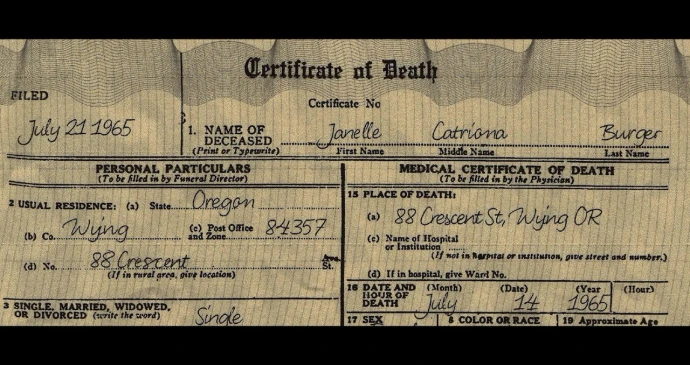 Certificate of Death
FILED
Certificate No
July 21 1965
1. NAME OF DECEASED
(Print or Typewrite)
Janelle Catriona Burger
First Name Middle Name Last Name
PERSONAL PARTICULARS
(To be filled in by Funeral Director)
2 USUAL RESIDENCE: (a) State Oregon
(b) Co. Wying (c) Post Office and Zone 84357
(d) No. 88 Crescent Ave. St.
(If in rural area, give location)
3 SINGLE, MARRIED, WIDOWED,
OR DIVORCED (write the word) Single
MEDICAL CERTIFICATE OF DEATH
(To be filled in by the Physician)
15 PLACE OF DEATH:
(a) 88 Crescent St, Wying OR
(c) Name of Hospital
or Institution
(If not in hospital or institution, give street and number.)
(d) If in hospital, give Ward No.
16 DATE AND HOUR OF DEATH (Month) (Date) (Year) (Hour)
July 14 1965
17 SEX 8 COLOR OR RACE 19 Approximate Age